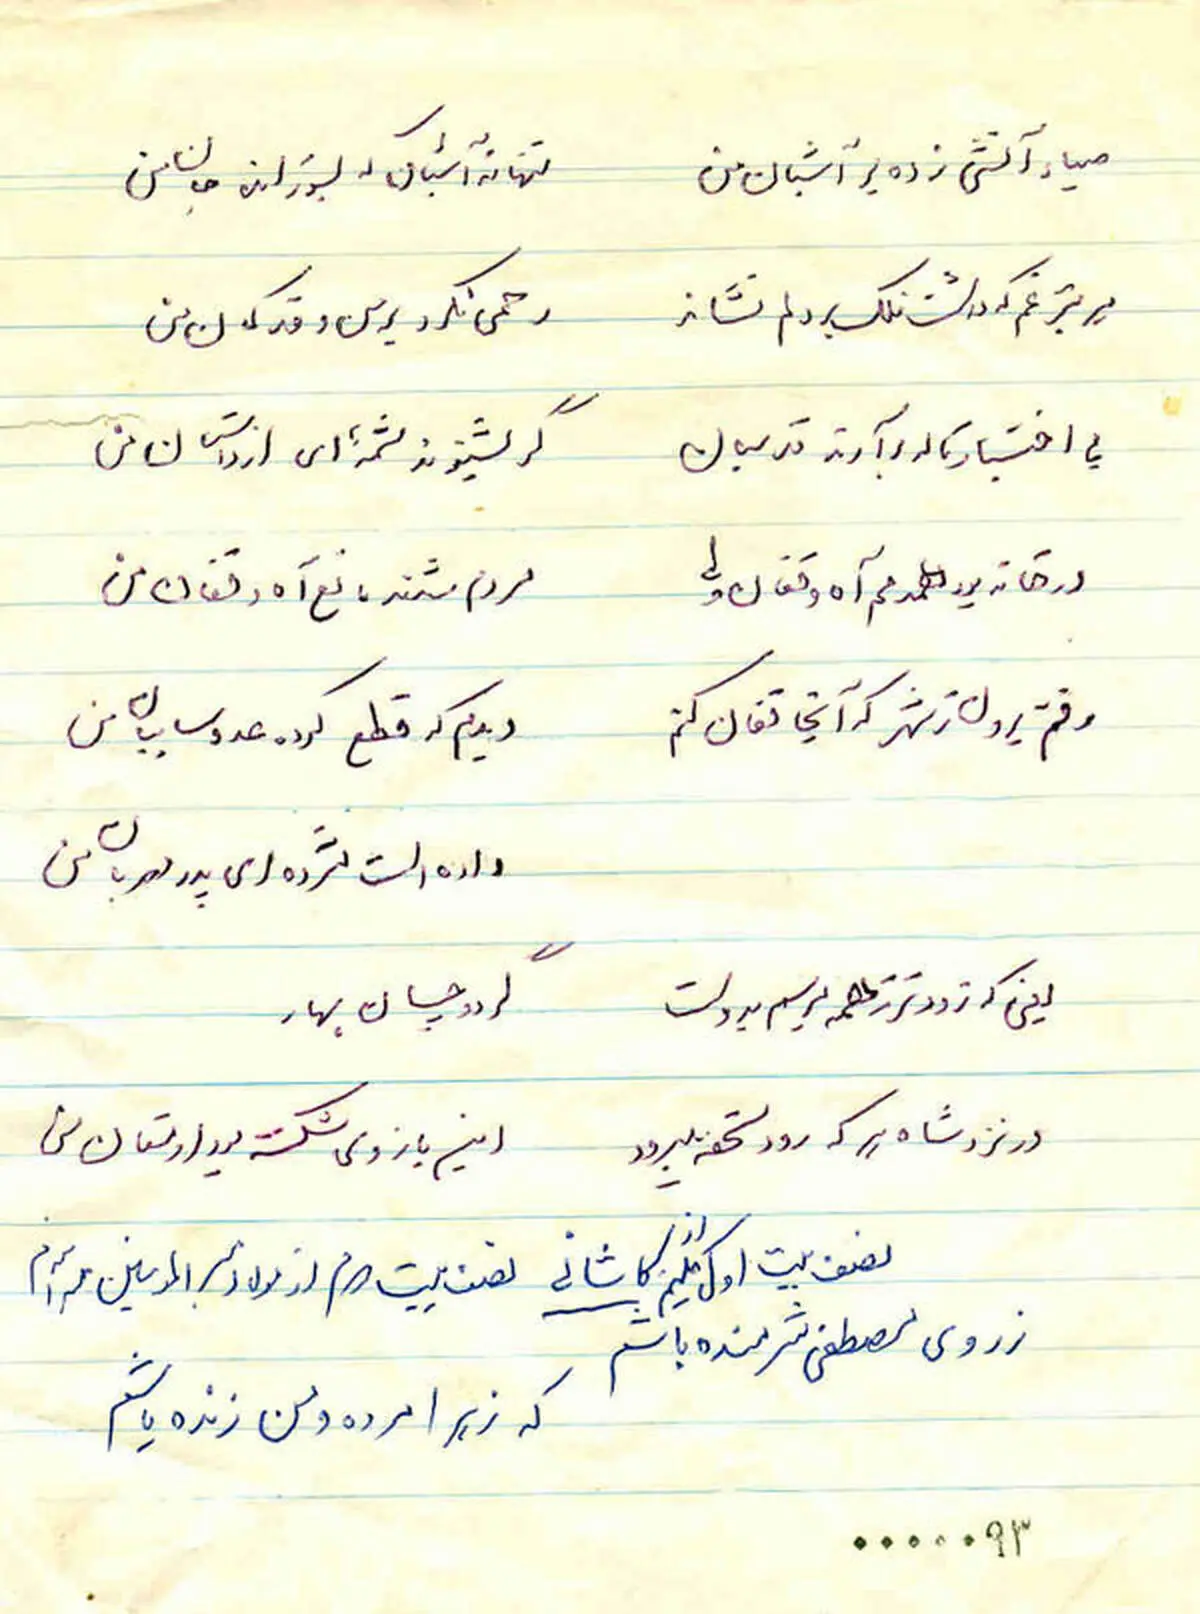 صیاد آتشی زده بر آشیان من تنها نه آشیان که بسوزانده جان من
هر تیر غم که داشت فلک بر دلم نشاند رحمی نکرد بر من و قد کمان من
بی اختیار ناله برآرند قدسیان گر بشنوند شمه ای از داستان من
در خانه بود همدم من آه و فغان ولی مردم شدند مانع آه و فغان من
رفتم برون ز شهر که آنجا فغان کنم دیدم که قطع کرده عدو سایبان من
داده است مژده ای پدر مهربان من
یعنی که زودتر ز همه برسم به دولت گردد چسان بهار
در نزد شاه هر که رود تحفه میبرد اینم بازوی شکسته بود ارمغان من
نصف بیت اول از کلیم کاشانی نصف بیت دوم از مولا امیر المومنین علیه السلام
ز روی مصطفی شرمنده باشم
که زهرا مرده و من زنده باشم
۰۰۰۰۰۹۳